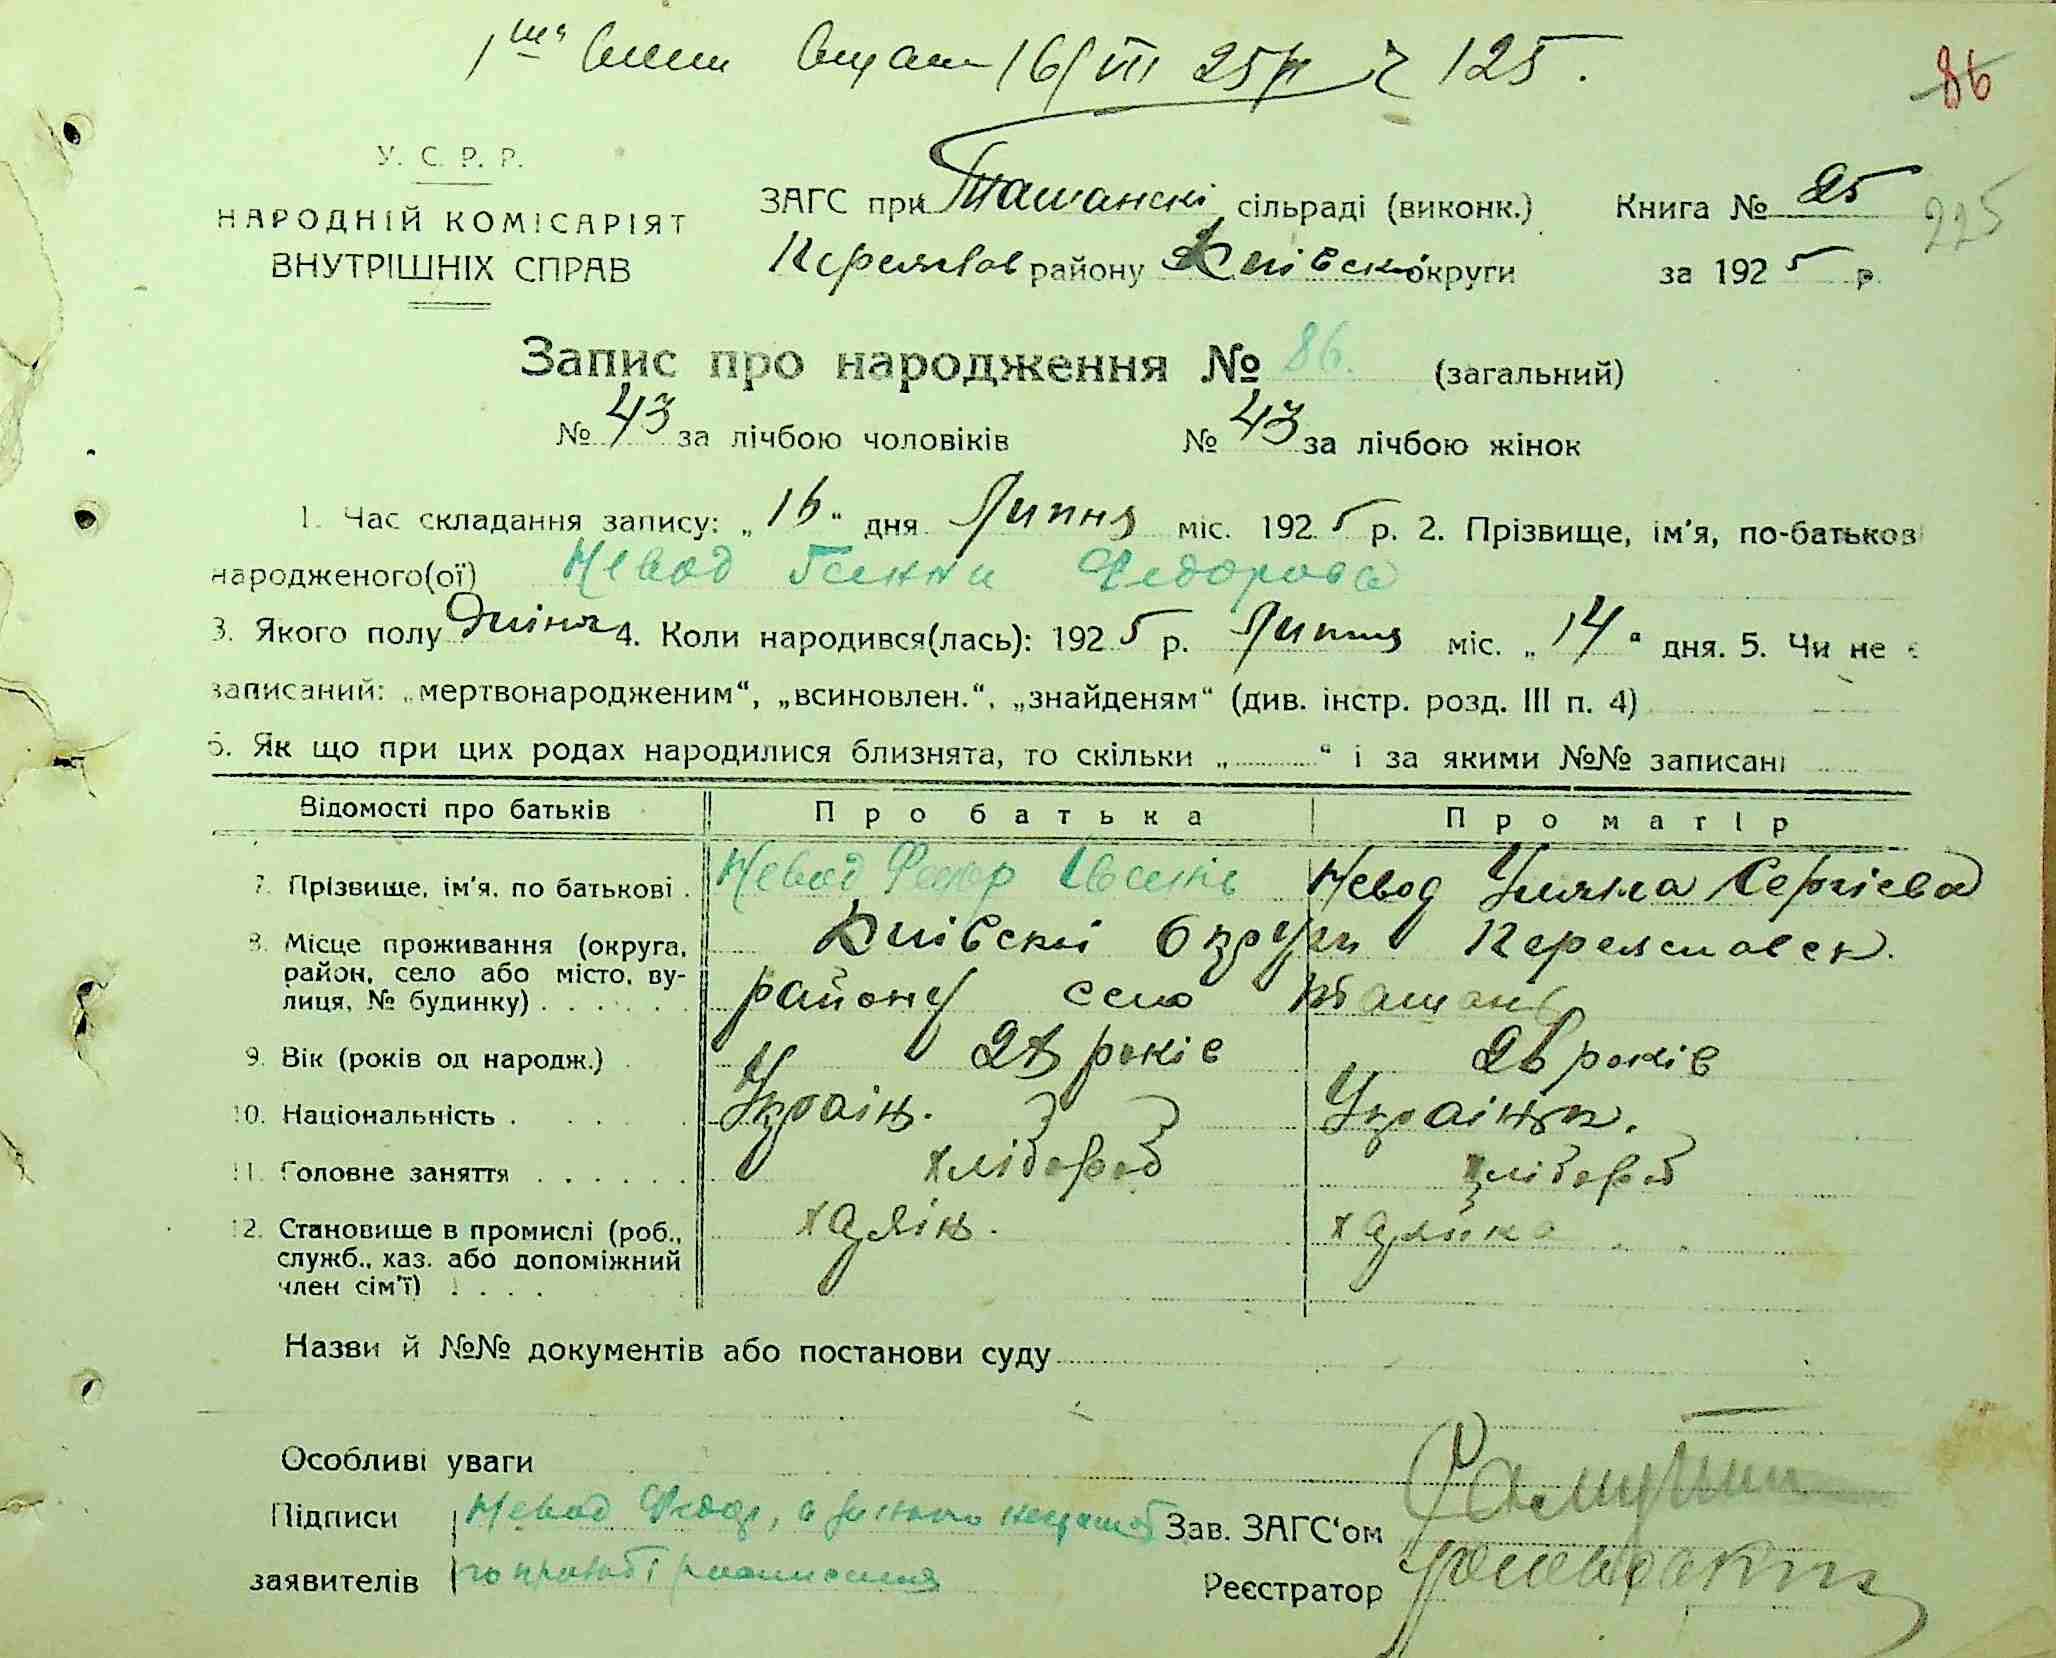 16/VII 25р № 125.
86
У. С. Р. Р.
НАРОДНІЙ КОМІСАРІЯТ
ВНУТРІШНІХ СПРАВ
ЗАГС при Ташанскі сільраді (виконк.) Книга № 25
225
Переяслов району Київскі округи за 1925 р.
Запис про народження № 86. (загальний)
№ 43 за лічбою чоловіків № 43 за лічбою жінок
1. Час складання запису: „16“ дня Липня міс. 1925 р. 2. Прізвище, ім'я, по-батькові
народженого(ої) Невод Ганна Федорова
3. Якого полу 4. Коли народився(лась): 1925 р. Липня міс. „14“ дня. 5. Чи не є
записаний: „мертвонародженим“, „всиновлен.“, „знайденям“ (див. інстр. розд. III п. 4)
6. Як що при цих родах народилися близнята, то скільки „ “ і за якими №№ записані
Відомості про батьків Про батька Про матір
7. Прізвище, ім'я, по батькові . Невод Федор Невод Уляна Сергієва
8. Місце проживання (округа, Київскі Округи Переяславск.
район, село або місто, ву-
лиця, № будинку) . . . . . . району село Ташань
9. Вік (років од народж.) років 26 років
10. Національність . . . . . Україн. Українк.
11. Головне заняття . . . . . . хлібороб хлібороб
12. Становище в промислі (роб.,
служб., хаз. або допоміжний
член сім'ї) . . . .
Назви й №№ документів або постанови суду
Особливі уваги
Підписи Невод Федор, а Зав. ЗАГС'ом
заявителів Реєстратор